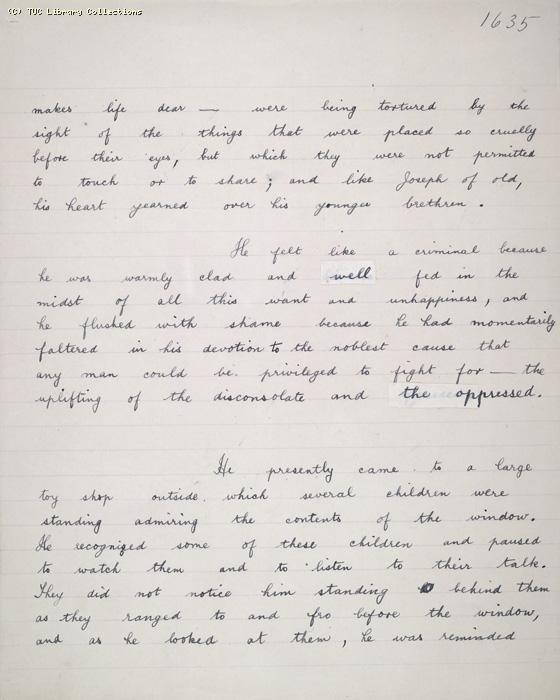 (C) TUC Library Collections
1635
makes life dear — were being tortured by the
sight of the things that were placed so cruelly
before their eyes, but which they were not permitted
to touch or to share; and like Joseph of old,
his heart yearned over his younger brethren.
He felt like a criminal because
he was warmly clad and well fed in the
midst of all this want and unhappiness, and
he flushed with shame because he had momentarily
faltered in his devotion to the noblest cause that
any man could be privileged to fight for — the
uplifting of the disconsolate and the oppressed.
He presently came to a large
toy shop outside which several children were
standing admiring the contents of the window.
He recognized some of these children and paused
to watch them and to listen to their talk.
They did not notice him standing behind them
as they ranged to and fro before the window,
and as he looked at them, he was reminded